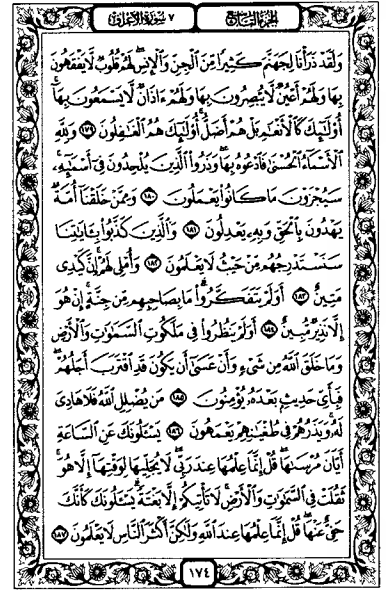 الجزء التاسع
٧ سورة الأعراف
وَلَقَدْ ذَرَأْنَا لِجَهَنَّمَ كَثِيرًا مِّنَ الْجِنِّ وَالْإِنسِ ۖ لَهُمْ قُلُوبٌ لَّا يَفْقَهُونَ
بِهَا وَلَهُمْ أَعْيُنٌ لَّا يُبْصِرُونَ بِهَا وَلَهُمْ آذَانٌ لَّا يَسْمَعُونَ بِهَا ۚ
أُولَٰئِكَ كَالْأَنْعَامِ بَلْ هُمْ أَضَلُّ ۚ أُولَٰئِكَ هُمُ الْغَافِلُونَ ١٧٩ وَلِلَّهِ
الْأَسْمَاءُ الْحُسْنَىٰ فَادْعُوهُ بِهَا ۖ وَذَرُوا الَّذِينَ يُلْحِدُونَ فِي أَسْمَائِهِ ۚ
سَيُجْزَوْنَ مَا كَانُوا يَعْمَلُونَ ١٨٠ وَمِمَّنْ خَلَقْنَا أُمَّةٌ
يَهْدُونَ بِالْحَقِّ وَبِهِ يَعْدِلُونَ ١٨١ وَالَّذِينَ كَذَّبُوا بِآيَاتِنَا
سَنَسْتَدْرِجُهُم مِّنْ حَيْثُ لَا يَعْلَمُونَ ١٨٢ وَأُمْلِي لَهُمْ ۚ إِنَّ كَيْدِي
مَتِينٌ ١٨٣ أَوَلَمْ يَتَفَكَّرُوا ۗ مَا بِصَاحِبِهِم مِّن جِنَّةٍ ۚ إِنْ هُوَ
إِلَّا نَذِيرٌ مُّبِينٌ ١٨٤ أَوَلَمْ يَنظُرُوا فِي مَلَكُوتِ السَّمَاوَاتِ وَالْأَرْضِ
وَمَا خَلَقَ اللَّهُ مِن شَيْءٍ وَأَنْ عَسَىٰ أَن يَكُونَ قَدِ اقْتَرَبَ أَجَلُهُمْ ۖ
فَبِأَيِّ حَدِيثٍ بَعْدَهُ يُؤْمِنُونَ ١٨٥ مَن يُضْلِلِ اللَّهُ فَلَا هَادِيَ
لَهُ ۚ وَيَذَرُهُمْ فِي طُغْيَانِهِمْ يَعْمَهُونَ ١٨٦ يَسْأَلُونَكَ عَنِ السَّاعَةِ
أَيَّانَ مُرْسَاهَا ۖ قُلْ إِنَّمَا عِلْمُهَا عِندَ رَبِّي ۖ لَا يُجَلِّيهَا لِوَقْتِهَا إِلَّا هُوَ ۚ
ثَقُلَتْ فِي السَّمَاوَاتِ وَالْأَرْضِ ۚ لَا تَأْتِيكُمْ إِلَّا بَغْتَةً ۗ يَسْأَلُونَكَ كَأَنَّكَ
حَفِيٌّ عَنْهَا ۖ قُلْ إِنَّمَا عِلْمُهَا عِندَ اللَّهِ وَلَٰكِنَّ أَكْثَرَ النَّاسِ لَا يَعْلَمُونَ ١٨٧
١٧٤